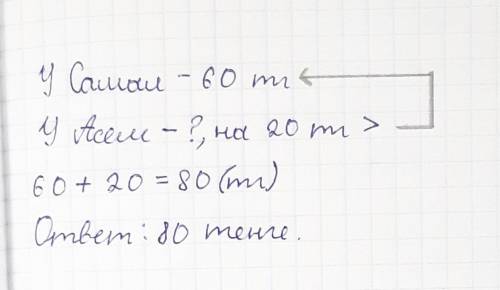 У Самал - 60 тг
У Асем - ?, на 20 тг >
60 + 20 = 80 (тг)
Ответ: 80 тенге.